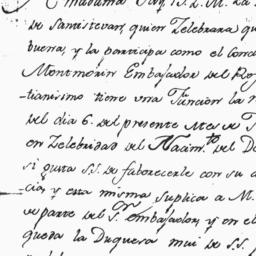 Madama Jay, B.L.M. La
de Santistevan, quien Zelebrara qu
buena, y la participa como el Conde
Montmorin Embajador del Rey
tianisimo tiene una Funcion la n
del dia 6. del presente Mes de
en Zelebridad del Nacim.to del D
si gusta S.S. de faborecerle con su a
cia, y esta misma suplica a M.
de parte del S.r embajador, y en el
queda la Duquesa mui de S.S.